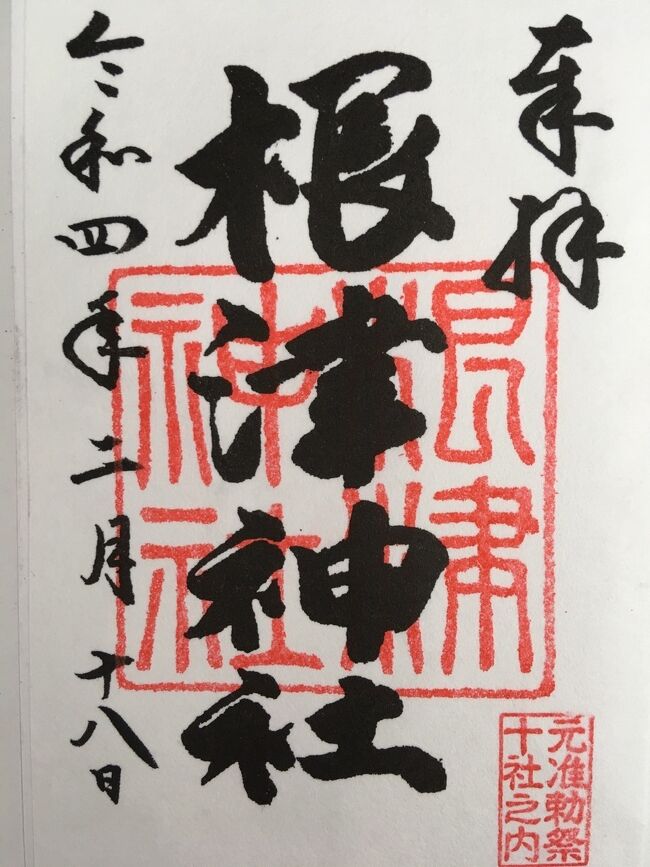 奉拝
根津神社
令和四年二月十八日
根津
神社
元准勅祭
十社之内